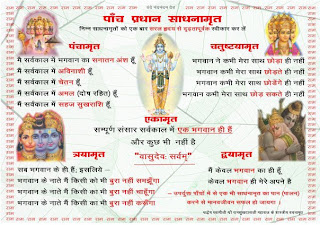 पाँच प्रधान साधनामृत
निम्न साधनामृतों को एक बार सरल हृदय से दृढ़तापूर्वक स्वीकार कर लें
पंचामृत
मैं सर्वकाल में भगवान का सनातन अंश हूँ
मैं सर्वकाल में अविनाशी हूँ
मैं सर्वकाल में चेतन हूँ
मैं सर्वकाल में अमल (दोष रहित) हूँ
मैं सर्वकाल में सहज सुखराशि हूँ
चतुष्टयामृत
भगवान ने कभी मेरा साथ छोड़ा ही नहीं
भगवान कभी मेरा साथ छोड़ते ही नहीं
भगवान कभी मेरा साथ छोड़ेंगे ही नहीं
भगवान कभी मेरा साथ छोड़ सकते ही नहीं
एकामृत
सम्पूर्ण संसार सर्वकाल में एक भगवान ही हैं
और कुछ भी नहीं है
"वासुदेवः सर्वम्"
त्रयामृत
सब भगवान के ही हैं; इसलिये -
भगवान के नाते मैं किसी को भी बुरा नहीं समझूँगा
भगवान के नाते मैं किसी का भी बुरा नहीं चाहूँगा
भगवान के नाते मैं किसी का भी बुरा नहीं करूँगा
द्वयामृत
मैं केवल भगवान का ही हूँ
केवल भगवान ही मेरे अपने है
- उपर्युक्त पाँचों में से एक भी साधनामृत का पान (पालन)
करने से मानवजीवन सफल हो जायगा।